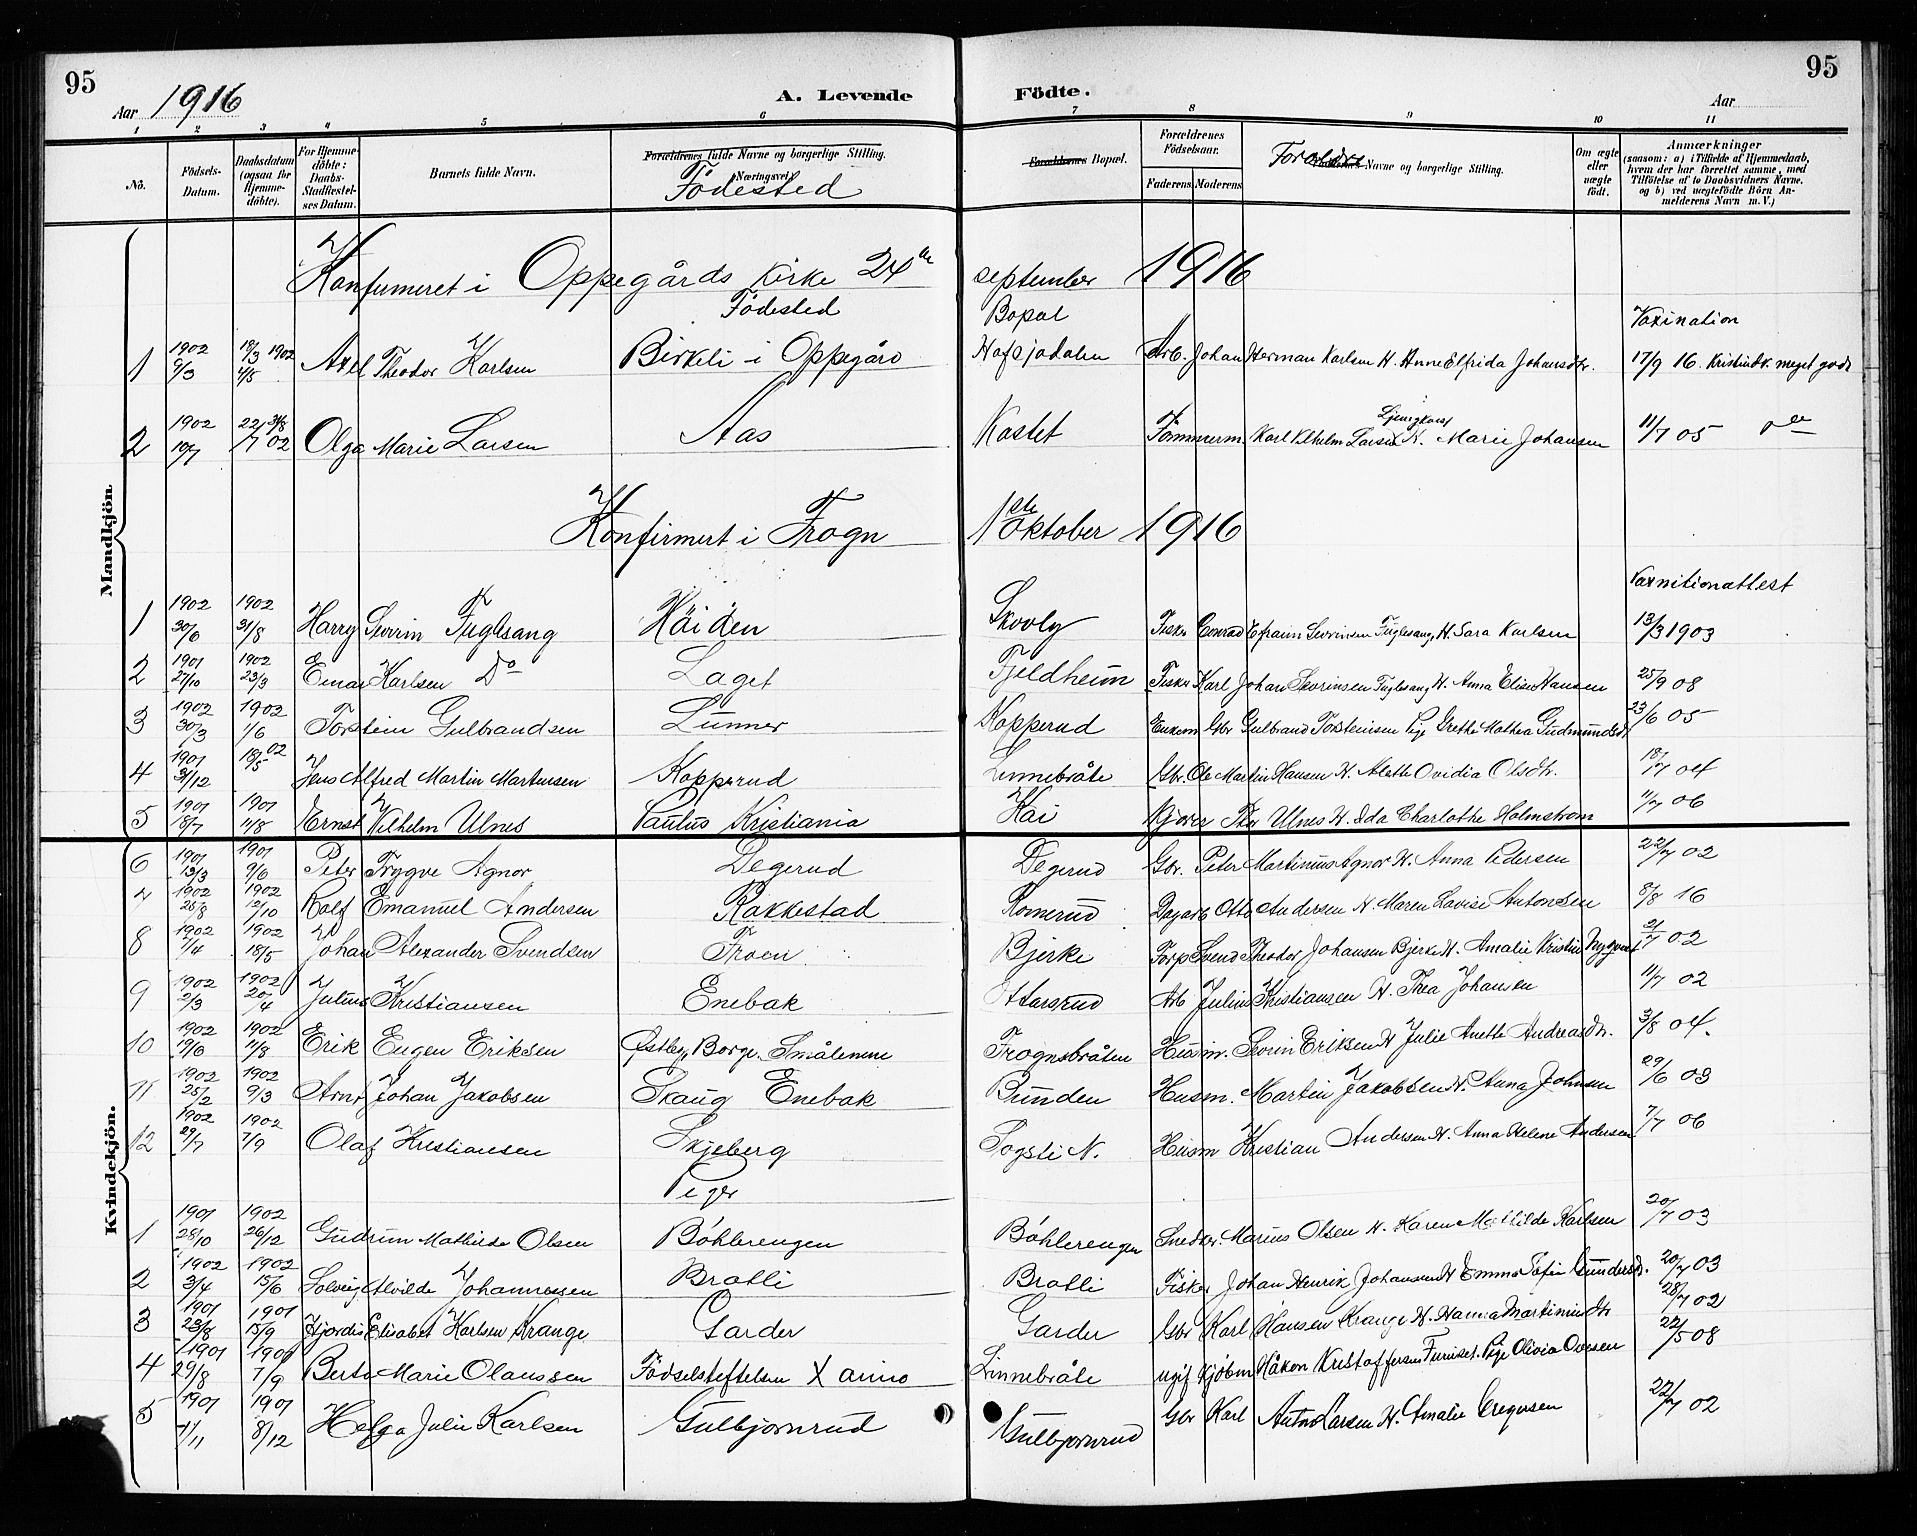 95
95
Aar 1916
A. Levende Födte.
Aar
1 2 3 4 5 6 7 8 9 10 11
No.
Födsels-Datum.
Daabsdatum (ogsaa for Hjemmedöbte).
For Hjemmedöbte: Daabs-Stadfæstelses Datum.
Barnets fulde Navn.
Forældrenes fulde Navne og borgerlige Stilling. Næringsvei
Födested
Forældrenes Bopæl.
Forældrenes Födselsaar. Faderens Moderens
Foreldre Navne og borgerlige Stilling.
Om ægte eller uægte födt.
Anmærkninger (saasom: a) i Tilfælde af Hjemmedaab, hvem der har forrettet samme, med Tilföielse af to Daabsvidners Navne, og b) ved uægtefödte Börn Anmelderens Navn m. V.)
Mandkjön
Konfirmeret i Oppegårds kirke 24de september 1916
Födested Bopæl Vaxination
1 1902 9/3 18/3 1902 4/5 Axel Theodor Karlsen Birkeli i Oppegård Hafsjodalen Arb. Johan Herman Karlsen H. Anne Elfrida Johansdtr. 17/9 16. Kristindk. meget godt
2 1902 10/7 22/7 02 Olga Marie Larsen Aas Kastet Tömmerm. Karl Vilhelm Larsen Ljungkvist H. Marie Johansen 11/7 05 do
Konfirmert i Frogn 1ste oktober 1916
Vaxnitionattest
1 1902 30/6 1902 31/8 Harry Severin Fuglesang Häiden Skovly Fisker Conrad Efraim Severinsen Fuglesang, H. Sara Karlsen 13/3 1903
2 1901 27/10 1902 23/3 Einar Karlsen Do Laget Fjeldheim Fisker Karl Johan Severinsen Fuglesang H. Anna Elise Hansen 25/9 08
3 1902 30/3 1902 1/6 Torstein Gulbrandsen Lunner Kopperud Enkem Gbr Gulbrand Torsteinsen Pige Grethe Mathea Gudmundsdtr 23/6 05
4 1901 31/12 18/5 02 Jens Alfred Martin Martinsen Kopperud Linnebråte Gbr. Ole Martin Hansen H. Alette Ovidia Olsdtr. 18/7 04
5 1901 18/7 1901 11/8 Ernst Vilhelm Ulnes Paulus Kristiania Kai Kjører Thor Ulnes H. Ida Charlothe Holmstrøm 11/7 06
Kvindekjön.
6 1901 13/3 1901 9/6 Peter Trygve Agnor Degerud Degerud Gbr. Peter Martinius Agnor H. Anna Pedersen 22/7 02
7 1902 25/8 1902 12/10 Rolf Emanuel Andersen Rakkestad Romerud Dagarb Otto Andersen H. Maren Lovise Antonsen 8/8 16
8 1902 7/4 1902 18/5 Johan Alexander Svendsen Froen Bjerke Forp Svend Theodor Johansen Bjerke H. Amalie Kristine Nygaard 2/7 02
9 1902 2/3 1902 20/4 Julius Kristiansen Enebak Ottarsrud Arb Julius Kristiansen H. Thea Johansen 11/7 02
10 1902 19/6 1902 11/8 Erik Eugen Eriksen Østby, Borge. Smålenene Frognsbråten Husm. Severin Eriksen H Julie Anette Andreasdtr. 3/8 04.
11 1902 25/2 1902 9/3 Arnt Johan Jakobsen Skaug Enebak Bunden Husm. Martin Jakobsen H. Anna Johnsen 29/6 03
12 1902 29/7 1902 7/9 Olaf Kristiansen Skjeberg Togsti N. Husm Kristian Andersen H. Anna Helene Andersen 7/7 06
Piger
1 1901 28/10 1902 26/12 Gudrun Mathilde Olsen Böhlerengen Böhlerengen Snedker. Marius Olsen H. Karen Mathilde Karlsen 20/7 03
2 1902 3/4 1902 15/6 Solveig Alvilde Johannessen Bratli Bratli Fisker Johan Henrik Johansen H Emma Sofie Gundersd. 20/7 03
3 1901 23/8 1901 15/9 Hjördis Elisabet Karlsen Krange Garder Garder Gbr Karl Hansen Krange H. Hanna Martiniusdtr 28/7 02
4 1901 29/8 1901 7/9 Berta Marie Olaussen Födselsteftelsen X ania Linnebråte ugif Kjöbm Håkon Kristoffersen Furuset. Pige Olivia Ovesen 22/5 08
5 1901 7/11 1901 8/12 Helga Julie Karlsen Gulbjørnrud Gulbjørnrud Gbr Karl Anton Larsen H. Amalie Gregersen 22/7 02